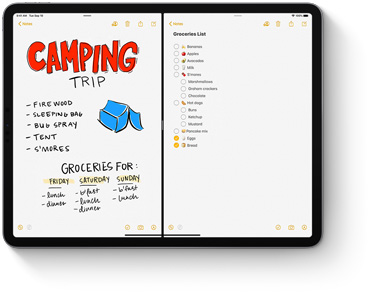 9:41 AM Tue Sep 15
100%
Notes
CAMPING
TRIP
- FIREWOOD
- SLEEPING BAG
- BUG SPRAY
- TENT
- S'MORES
GROCERIES FOR:
FRIDAY SATURDAY SUNDAY
- lunch - b'fast - b'fast
- dinner - lunch - lunch
- dinner
Notes
Groceries List
Bananas
Apples
Avocados
Milk
S'mores
Marshmallows
Graham crackers
Chocolate
Hot dogs
Buns
Ketchup
Mustard
Pancake mix
Eggs
Bread